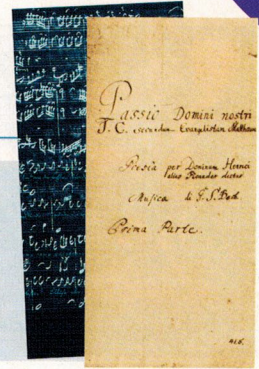 Passio Domini nostri
J. C. secundum Evangelistam Matthæum
Poesia per Dominum Henrici
alias Picander dictus
Musica di J. S. Bach.
Prima Parte.